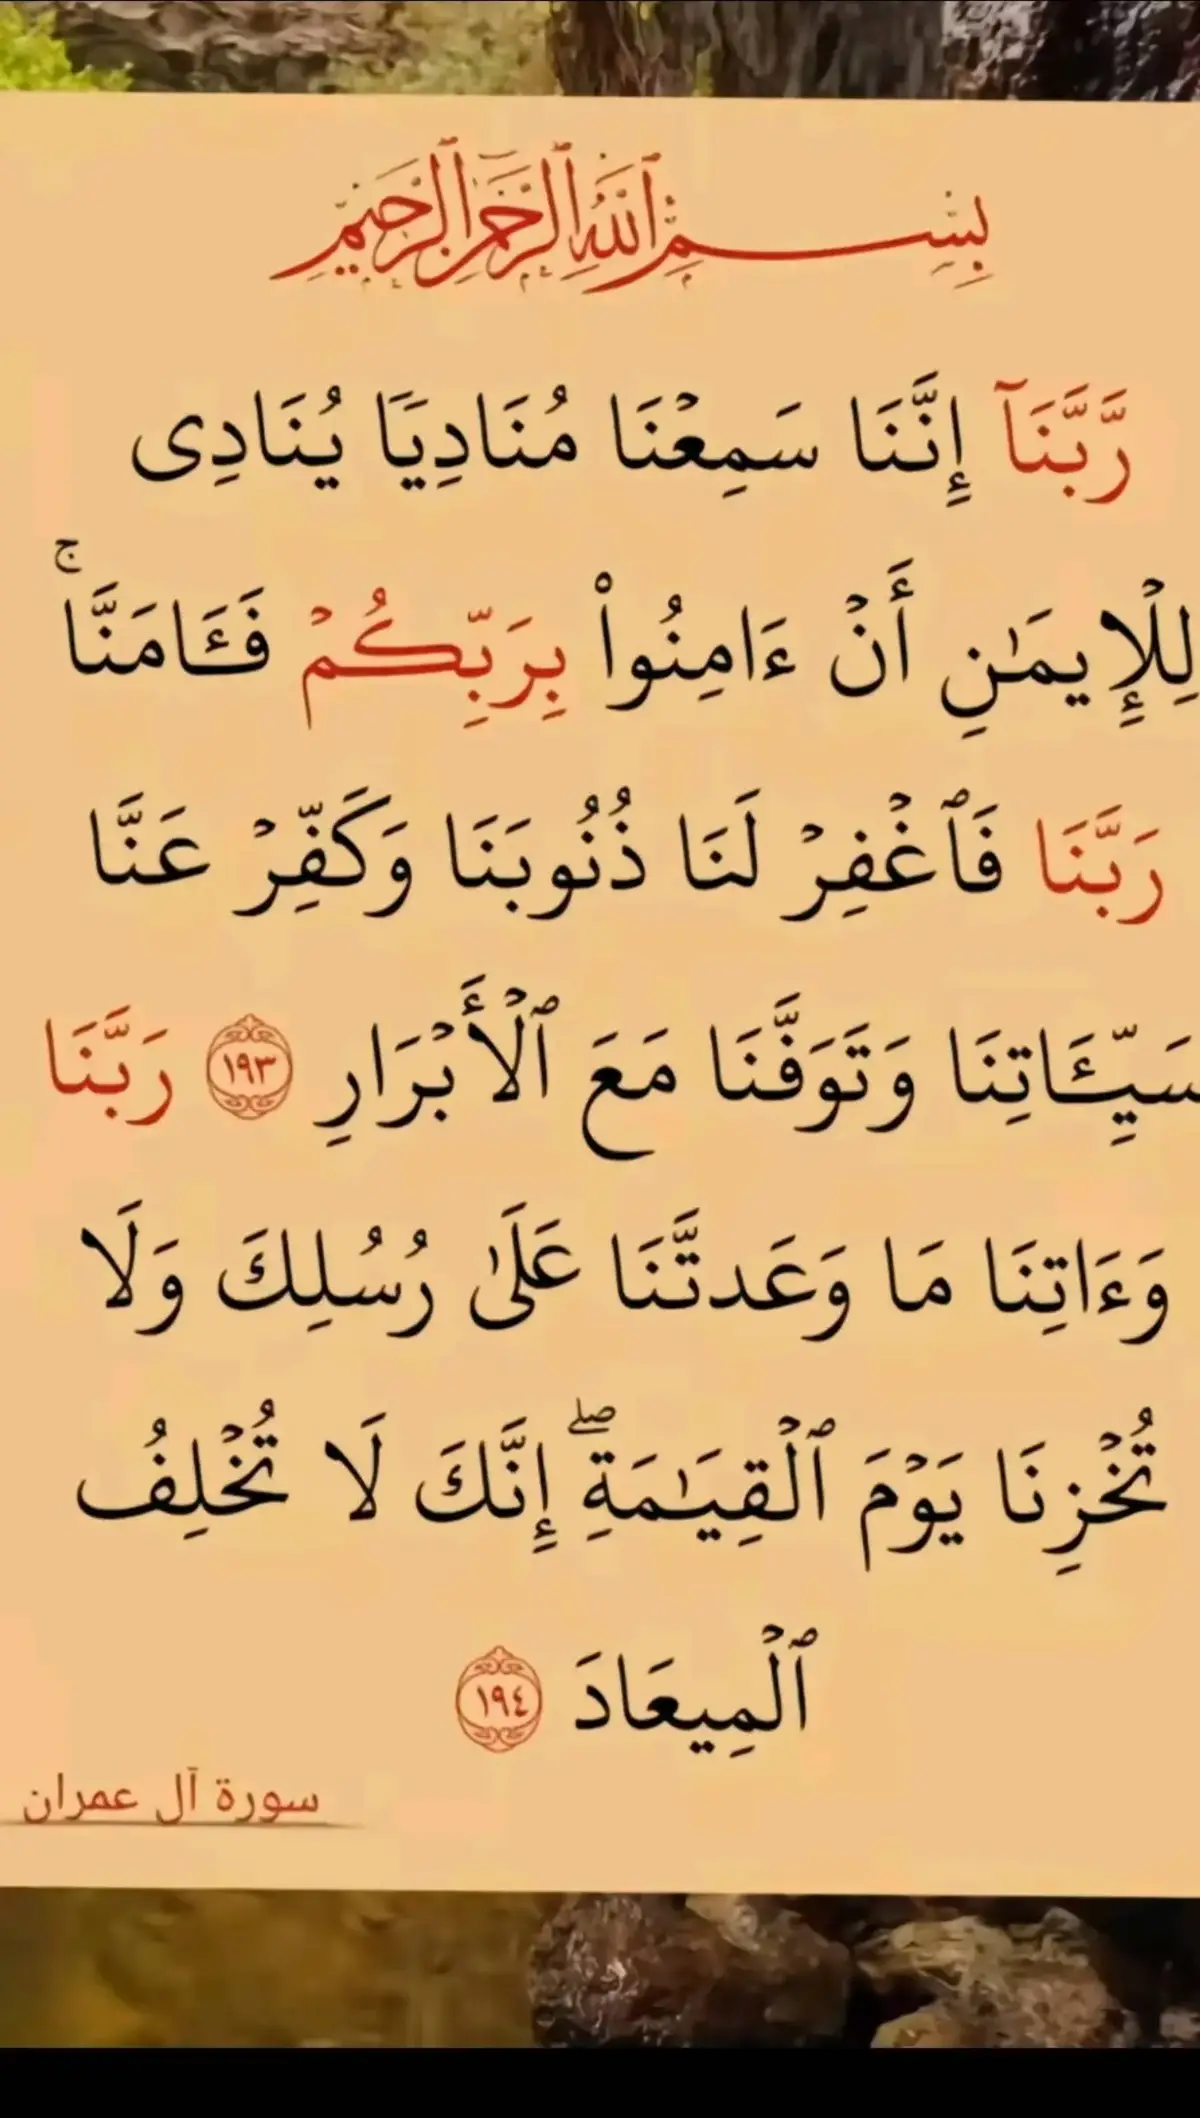 بِسْمِ اللَّهِ الرَّحْمَٰنِ الرَّحِيمِ
رَّبَّنَآ إِنَّنَا سَمِعْنَا مُنَادِيًا يُنَادِى
لِلْإِيمَٰنِ أَنْ ءَامِنُوا۟ بِرَبِّكُمْ فَـَٔامَنَّا ۚ
رَبَّنَا فَٱغْفِرْ لَنَا ذُنُوبَنَا وَكَفِّرْ عَنَّا
سَيِّـَٔاتِنَا وَتَوَفَّنَا مَعَ ٱلْأَبْرَارِ ١٩٣ رَبَّنَا
وَءَاتِنَا مَا وَعَدتَّنَا عَلَىٰ رُسُلِكَ وَلَا
تُخْزِنَا يَوْمَ ٱلْقِيَٰمَةِ ۖ إِنَّكَ لَا تُخْلِفُ
ٱلْمِيعَادَ ١٩٤
سورة آل عمران